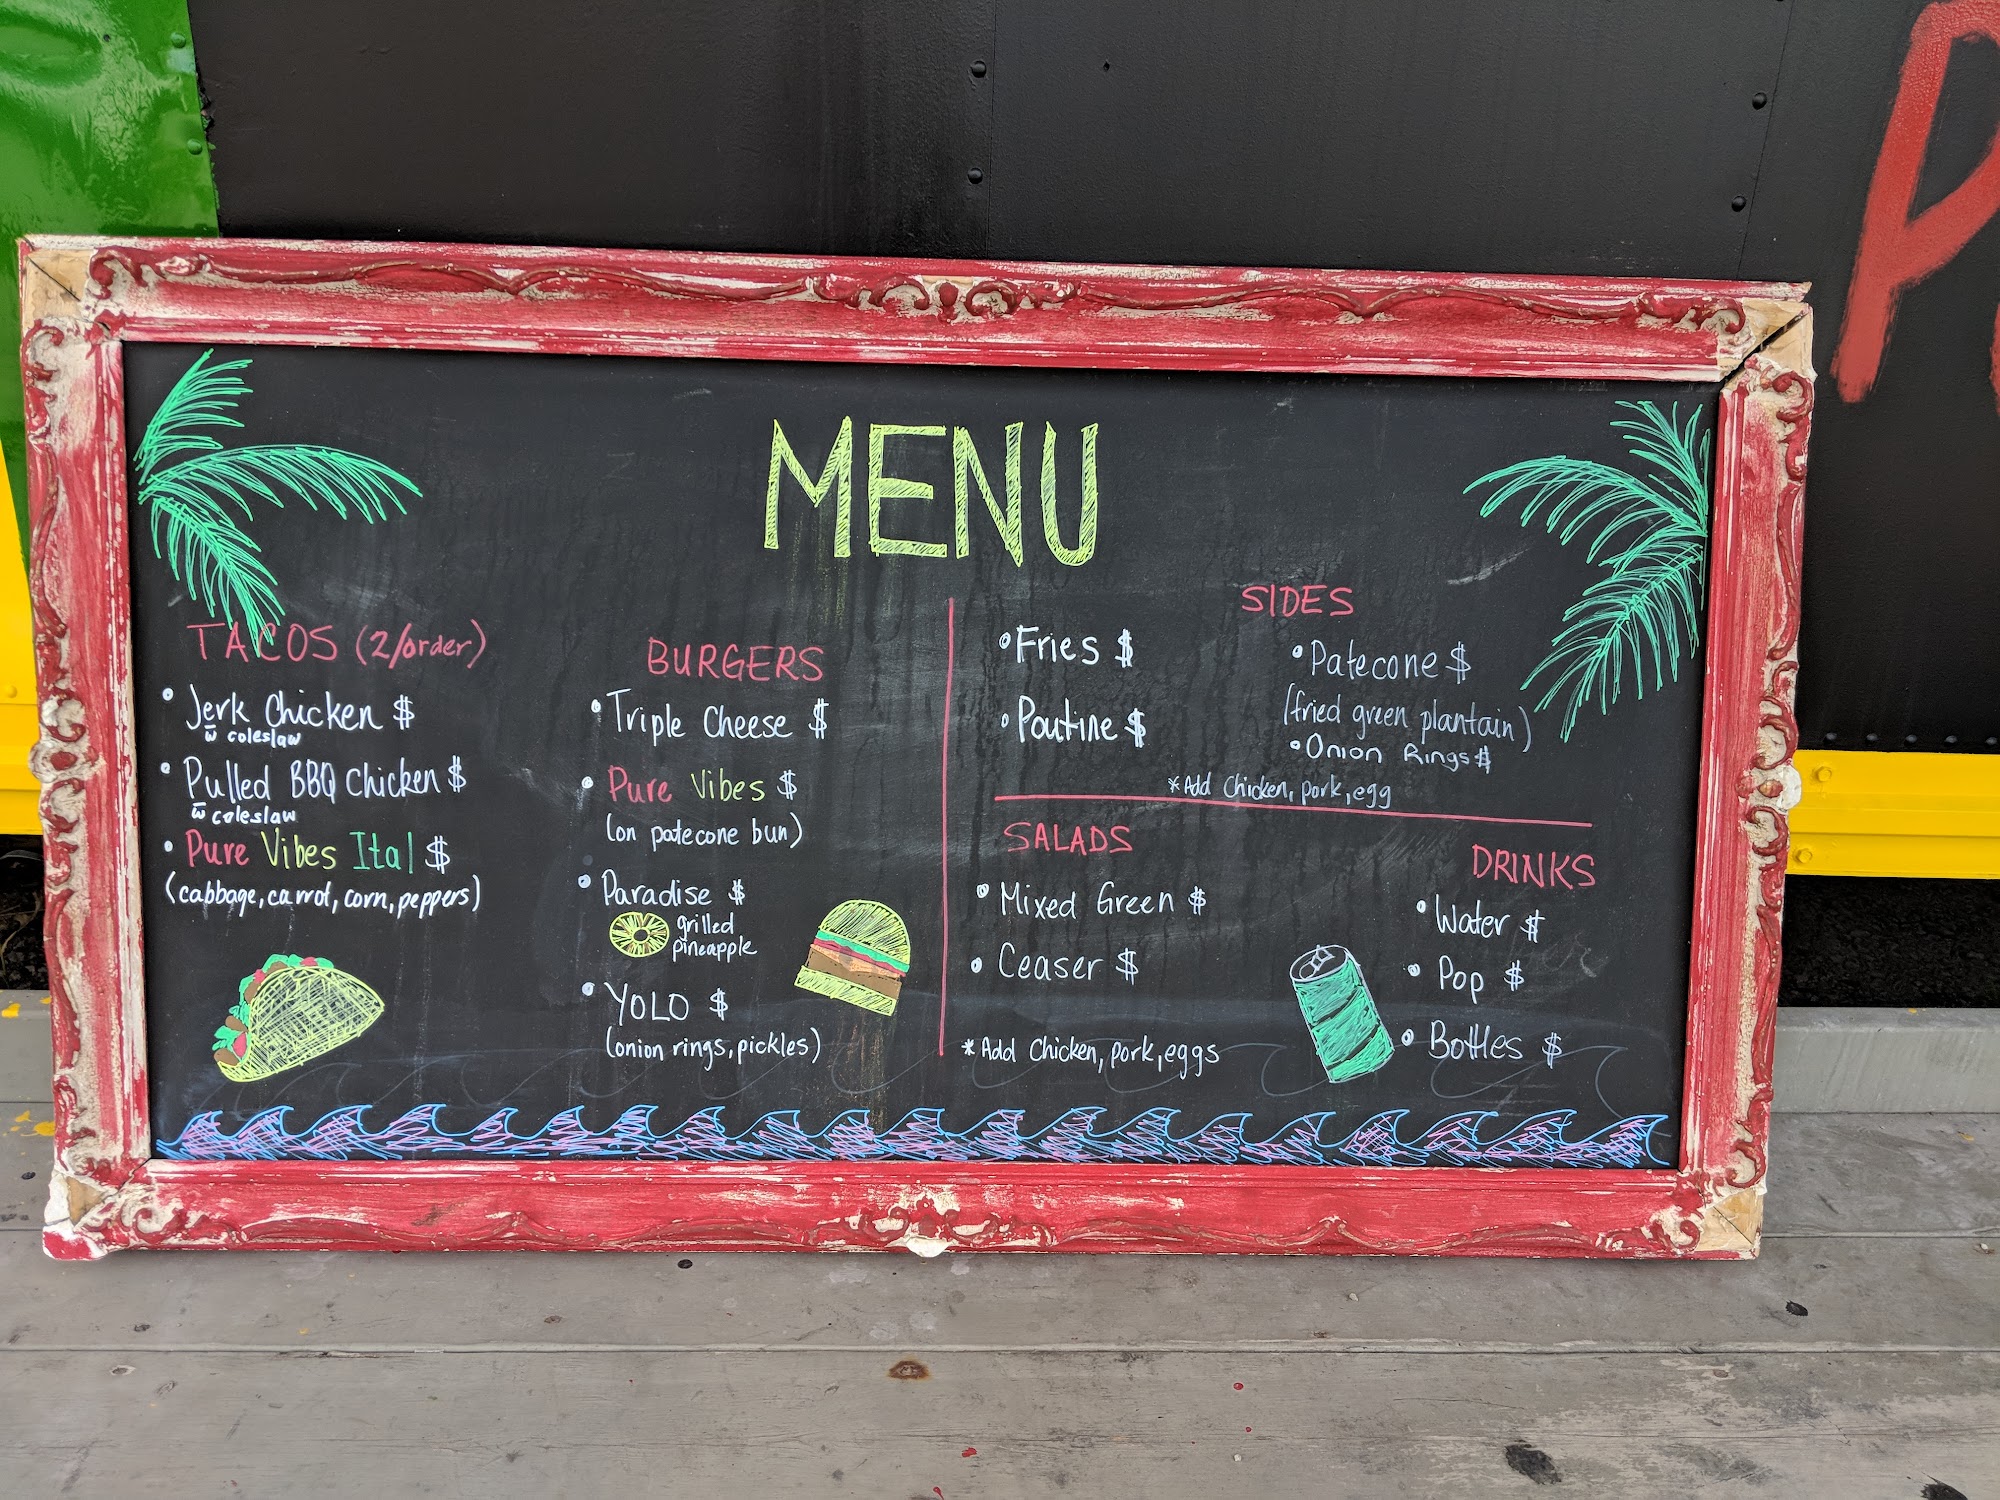 MENU
TACOS (2/order)
• Jerk Chicken $
w̄ coleslaw
• Pulled BBQ Chicken $
w̄ coleslaw
• Pure Vibes Ital $
(cabbage, carrot, corn, peppers)
BURGERS
• Triple Cheese $
• Pure Vibes $
(on patecone bun)
• Paradise $
grilled
pineapple
• YOLO $
(onion rings, pickles)
SIDES
• Fries $
• Poutine $
• Patecone $
(fried green plantain)
• Onion Rings $
*Add Chicken, pork, egg
SALADS
• Mixed Green $
• Ceaser $
*Add Chicken, pork, eggs
DRINKS
• Water $
• Pop $
• Bottles $
P